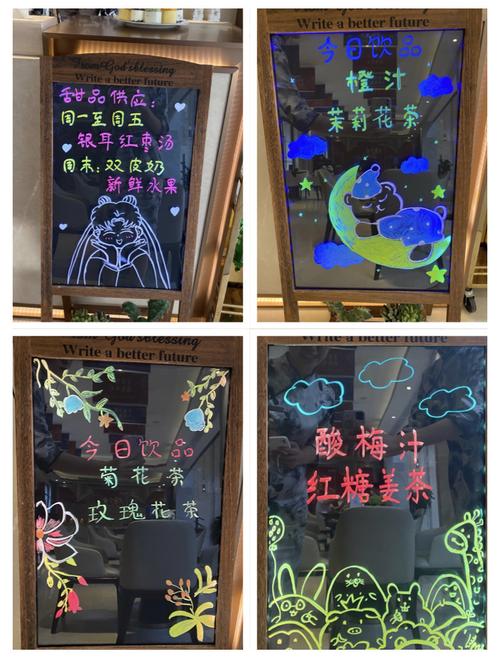 From God'sblessing
Write a better future
甜品供应:
周一至周五
银耳红枣汤
周末:双皮奶
新鲜水果
Write a better future
今日饮品
橙汁
茉莉花茶
God'sblessing
Write a better future
今日饮品
菊花茶
玫瑰花茶
酸梅汁
红糖姜茶